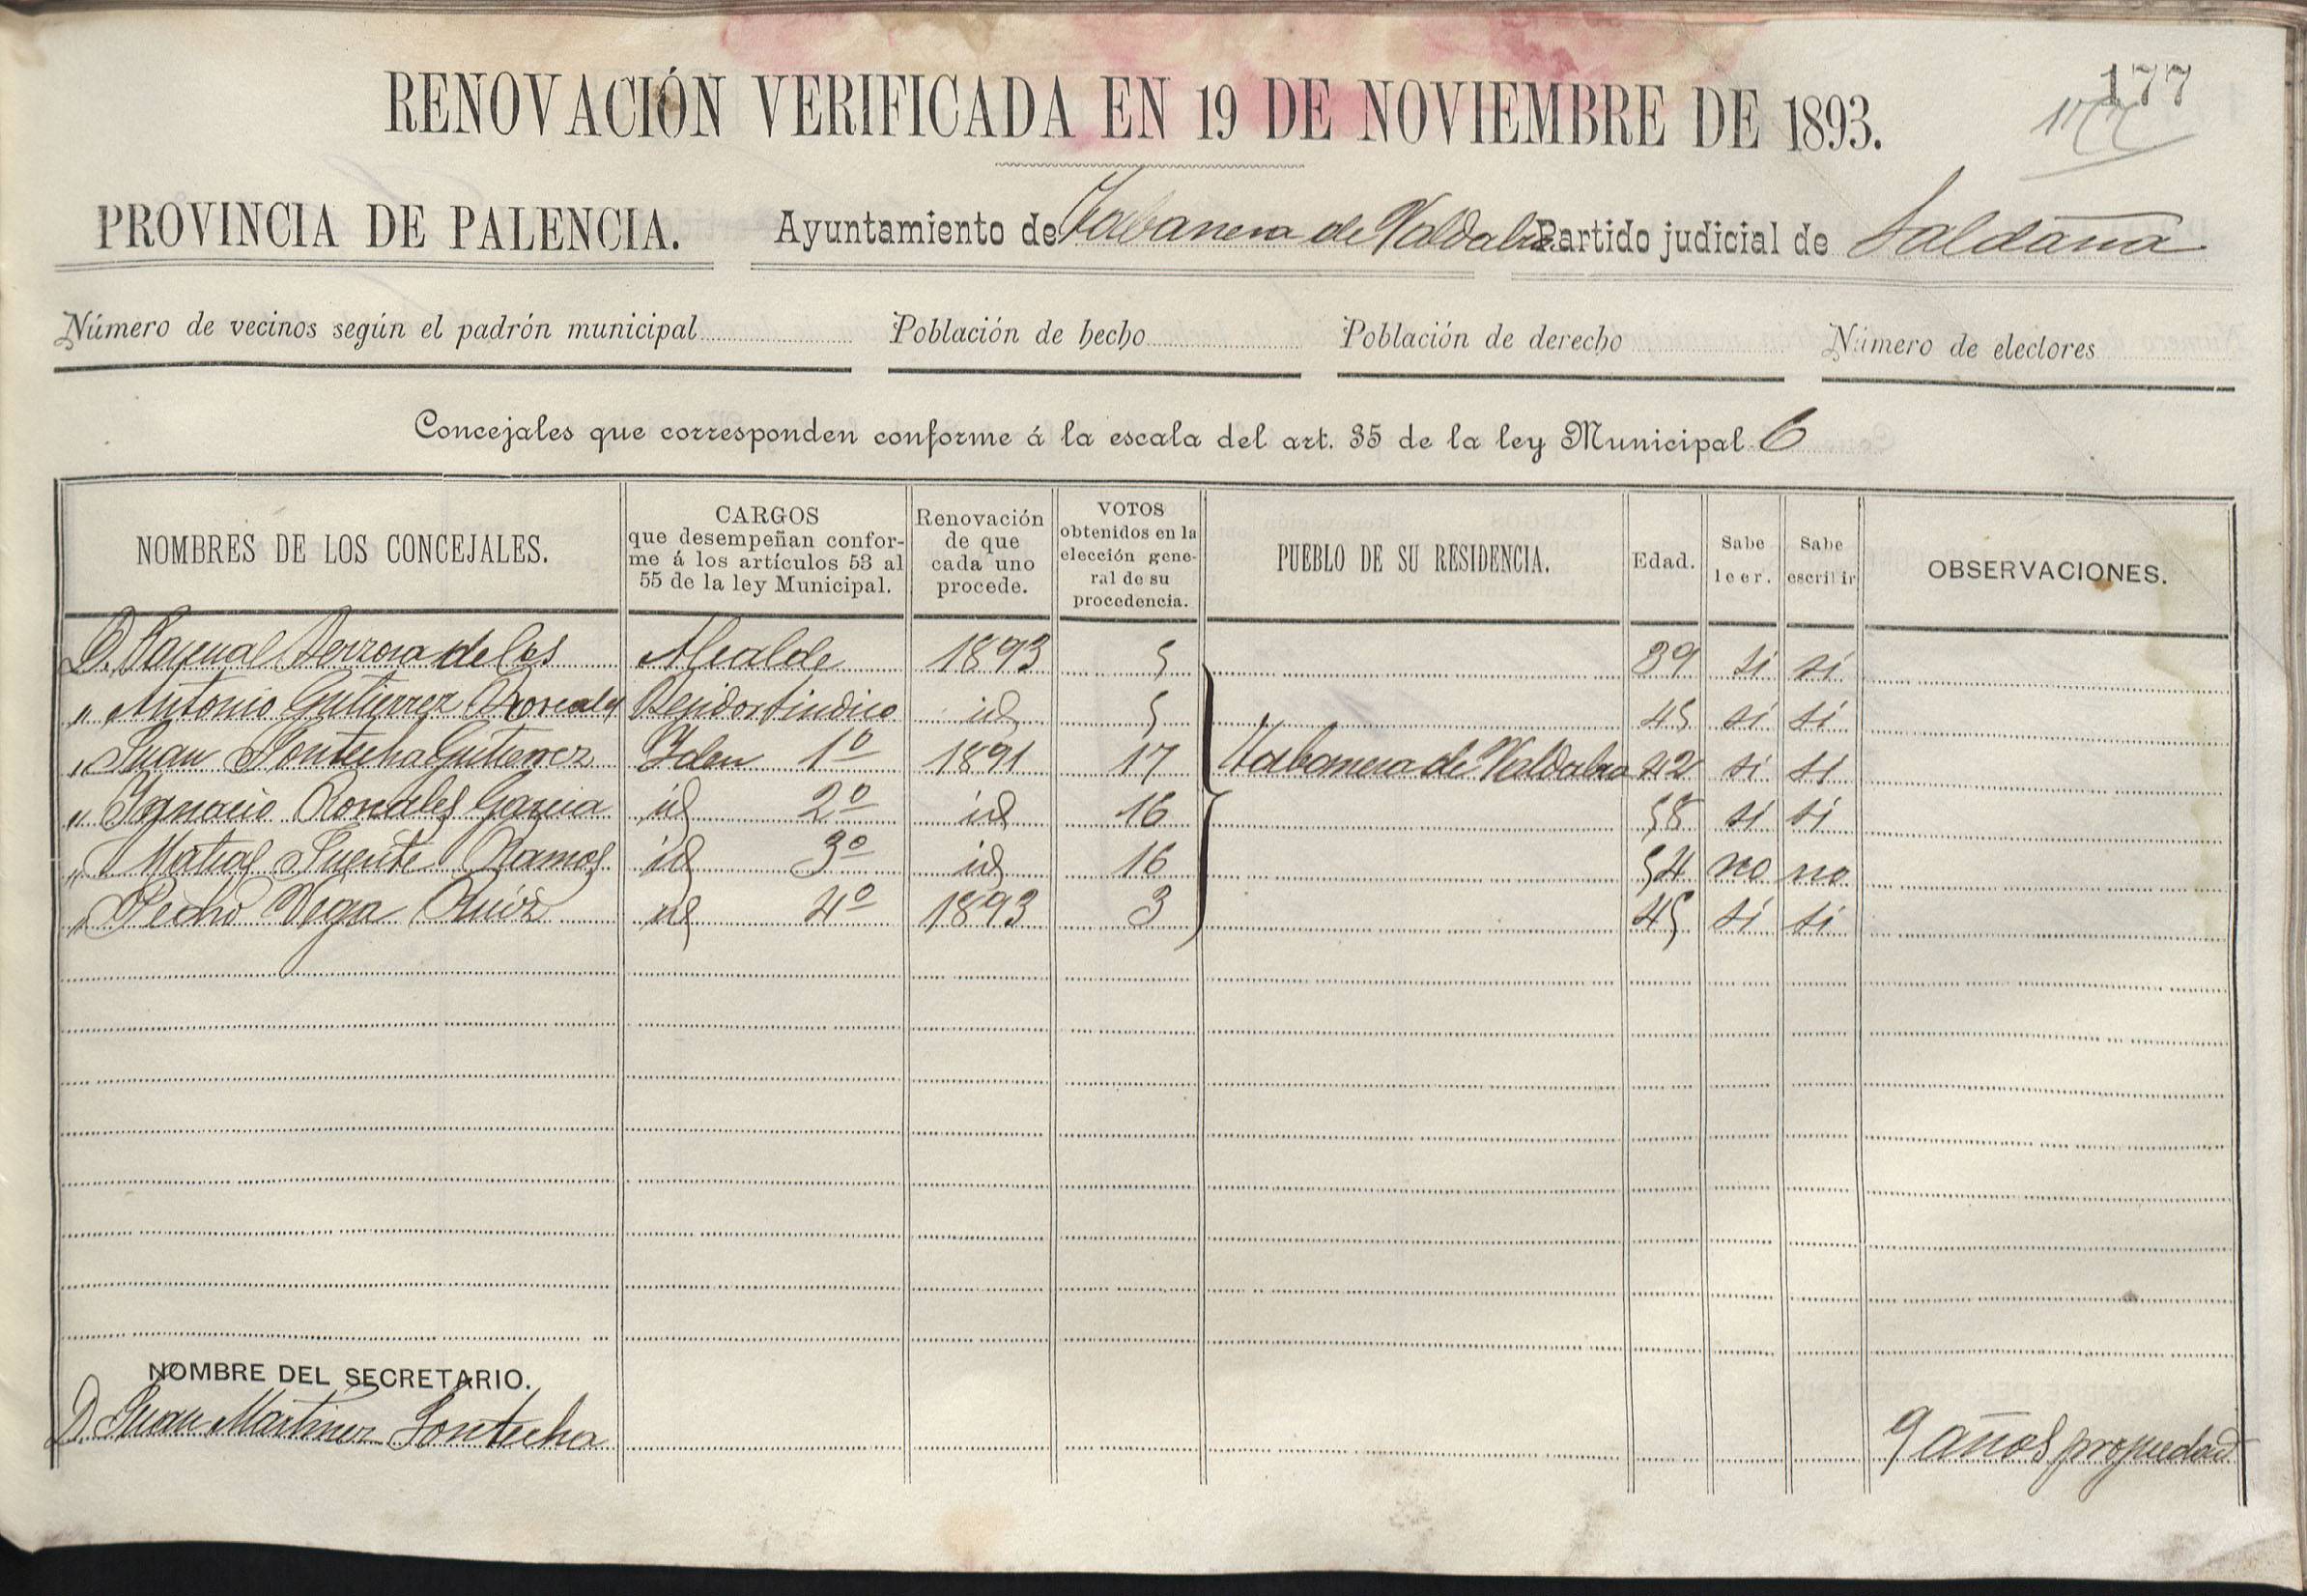 177
177
RENOVACIÓN VERIFICADA EN 19 DE NOVIEMBRE DE 1893.
PROVINCIA DE PALENCIA. Ayuntamiento de Tabanera de Valdabia Partido judicial de Saldaña
Número de vecinos según el padrón municipal Población de hecho Población de derecho Número de electores
Concejales que corresponden conforme á la escala del art. 35 de la ley Municipal 6
NOMBRES DE LOS CONCEJALES. CARGOS que desempeñan conforme á los artículos 53 al 55 de la ley Municipal. Renovación de que cada uno procede. VOTOS obtenidos en la elección general de su procedencia. PUEBLO DE SU RESIDENCIA. Edad. Sabe leer. Sabe escribir OBSERVACIONES.
D. Pascual de los Alcalde 1893 5 39 si si
" Antonio Gutierrez Rejidor Sindico id 5 45 si si
" Juan Fontecha Gutierrez Iden 1º 1891 17 Tabanera de Valdabia 42 si si
" Ignacio Garcia id 2º id 16 58 si si
" Matias Puente Ramos id 3º id 16 54 no no
" Pedro Vega Ruiz id 4º 1893 3 45 si si
NOMBRE DEL SECRETARIO.
D. Juan Martinez Fontecha 9 años propiedad